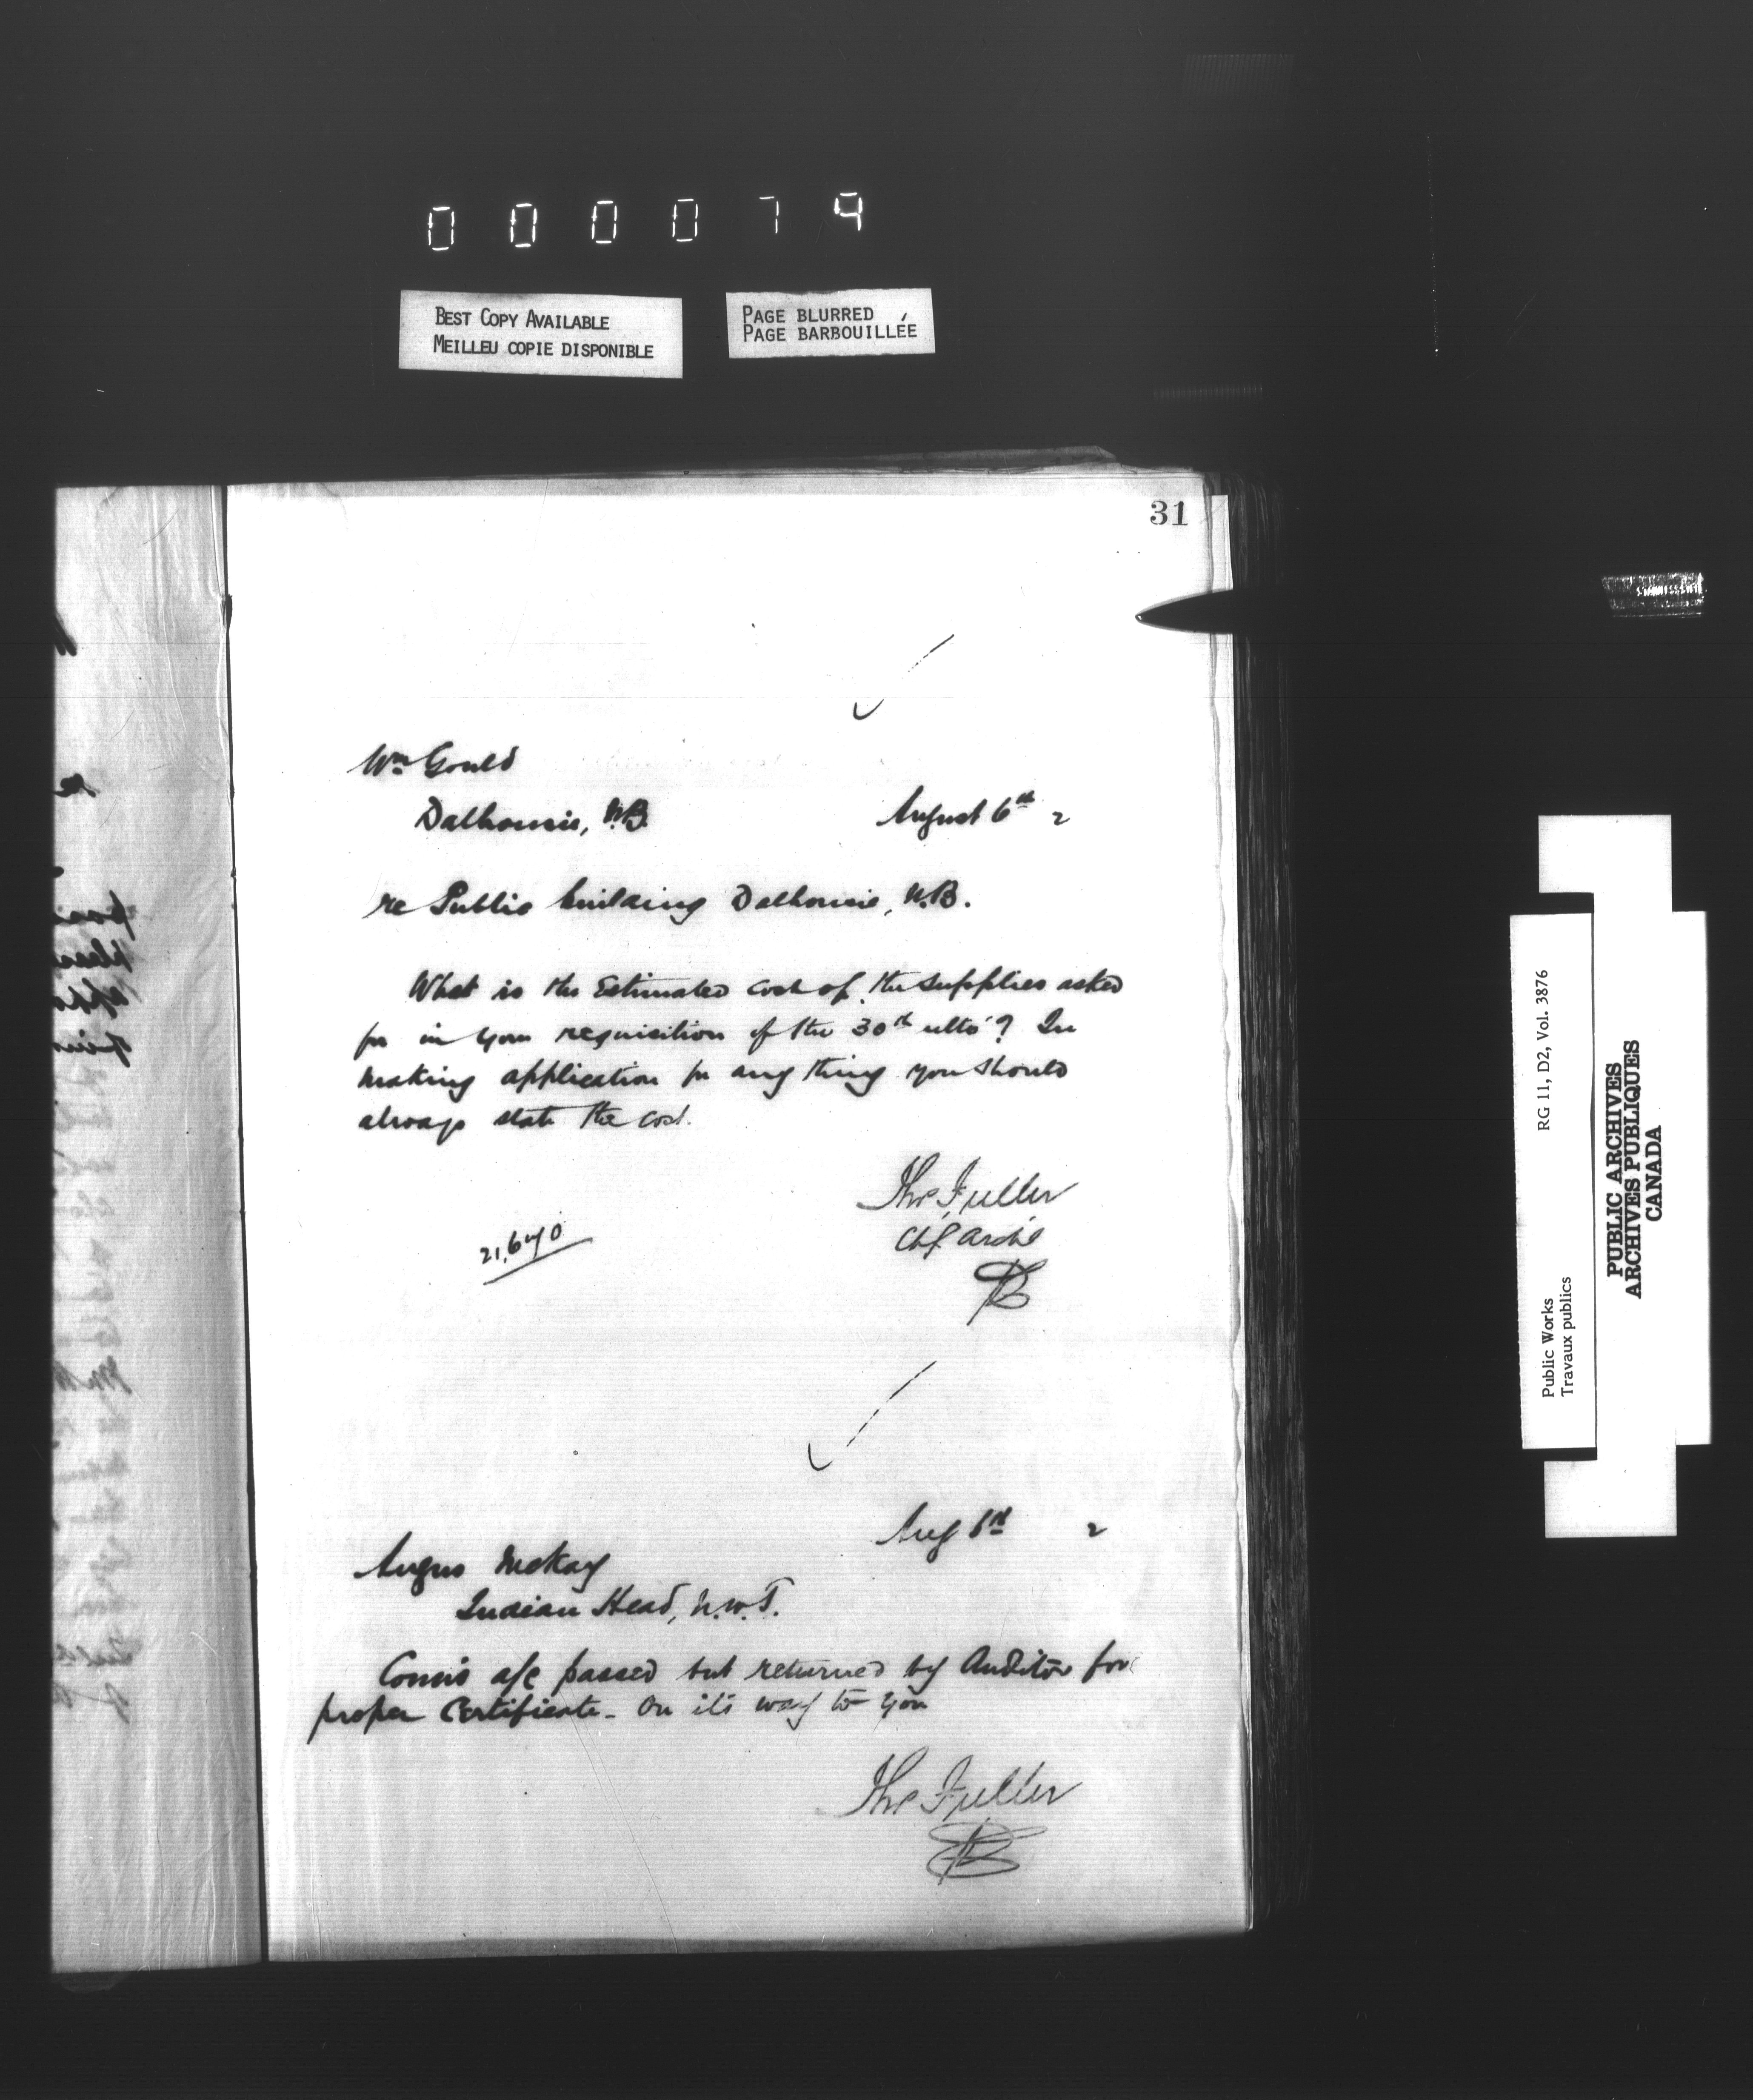 000079
BEST COPY AVAILABLE
MEILLEU COPIE DISPONIBLE
PAGE BLURRED
PAGE BARBOUILLÉE
31
Wm Gould
Dalhousie, N.B.
August 6th 2
re Public building Dalhousie, N.B.
What is the Estimated cost of the supplies asked
for in your requisition of the 30th ulto? In
making application for any thing you should
always state the cost.
Thos Fuller
Chf Archt
Aug 6th 2
Angus McKay
Indian Head, N.W.T.
a/c passed but returned by Auditor for
proper Certificate - On its way to you
Thos Fuller
Public Works
Travaux publics
RG 11, D2, Vol. 3876
PUBLIC ARCHIVES
ARCHIVES PUBLIQUES
CANADA